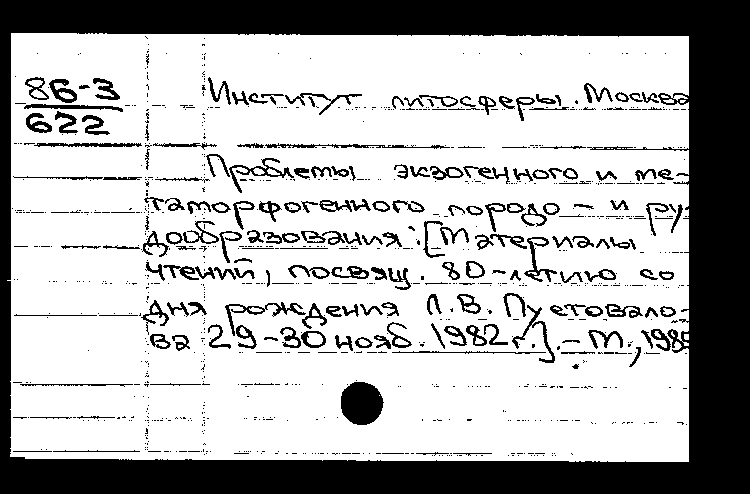 86-3
622
Институт литосферы. Москва
Проблемы экзогенного и ме-
таморфогенного породо - и ру-
дообразования: [Материалы
чтений, посвящ. 80-летию со
дня рождения Л.В. Пустовало-
ва 29-30 нояб. 1982 г.]. - М.,